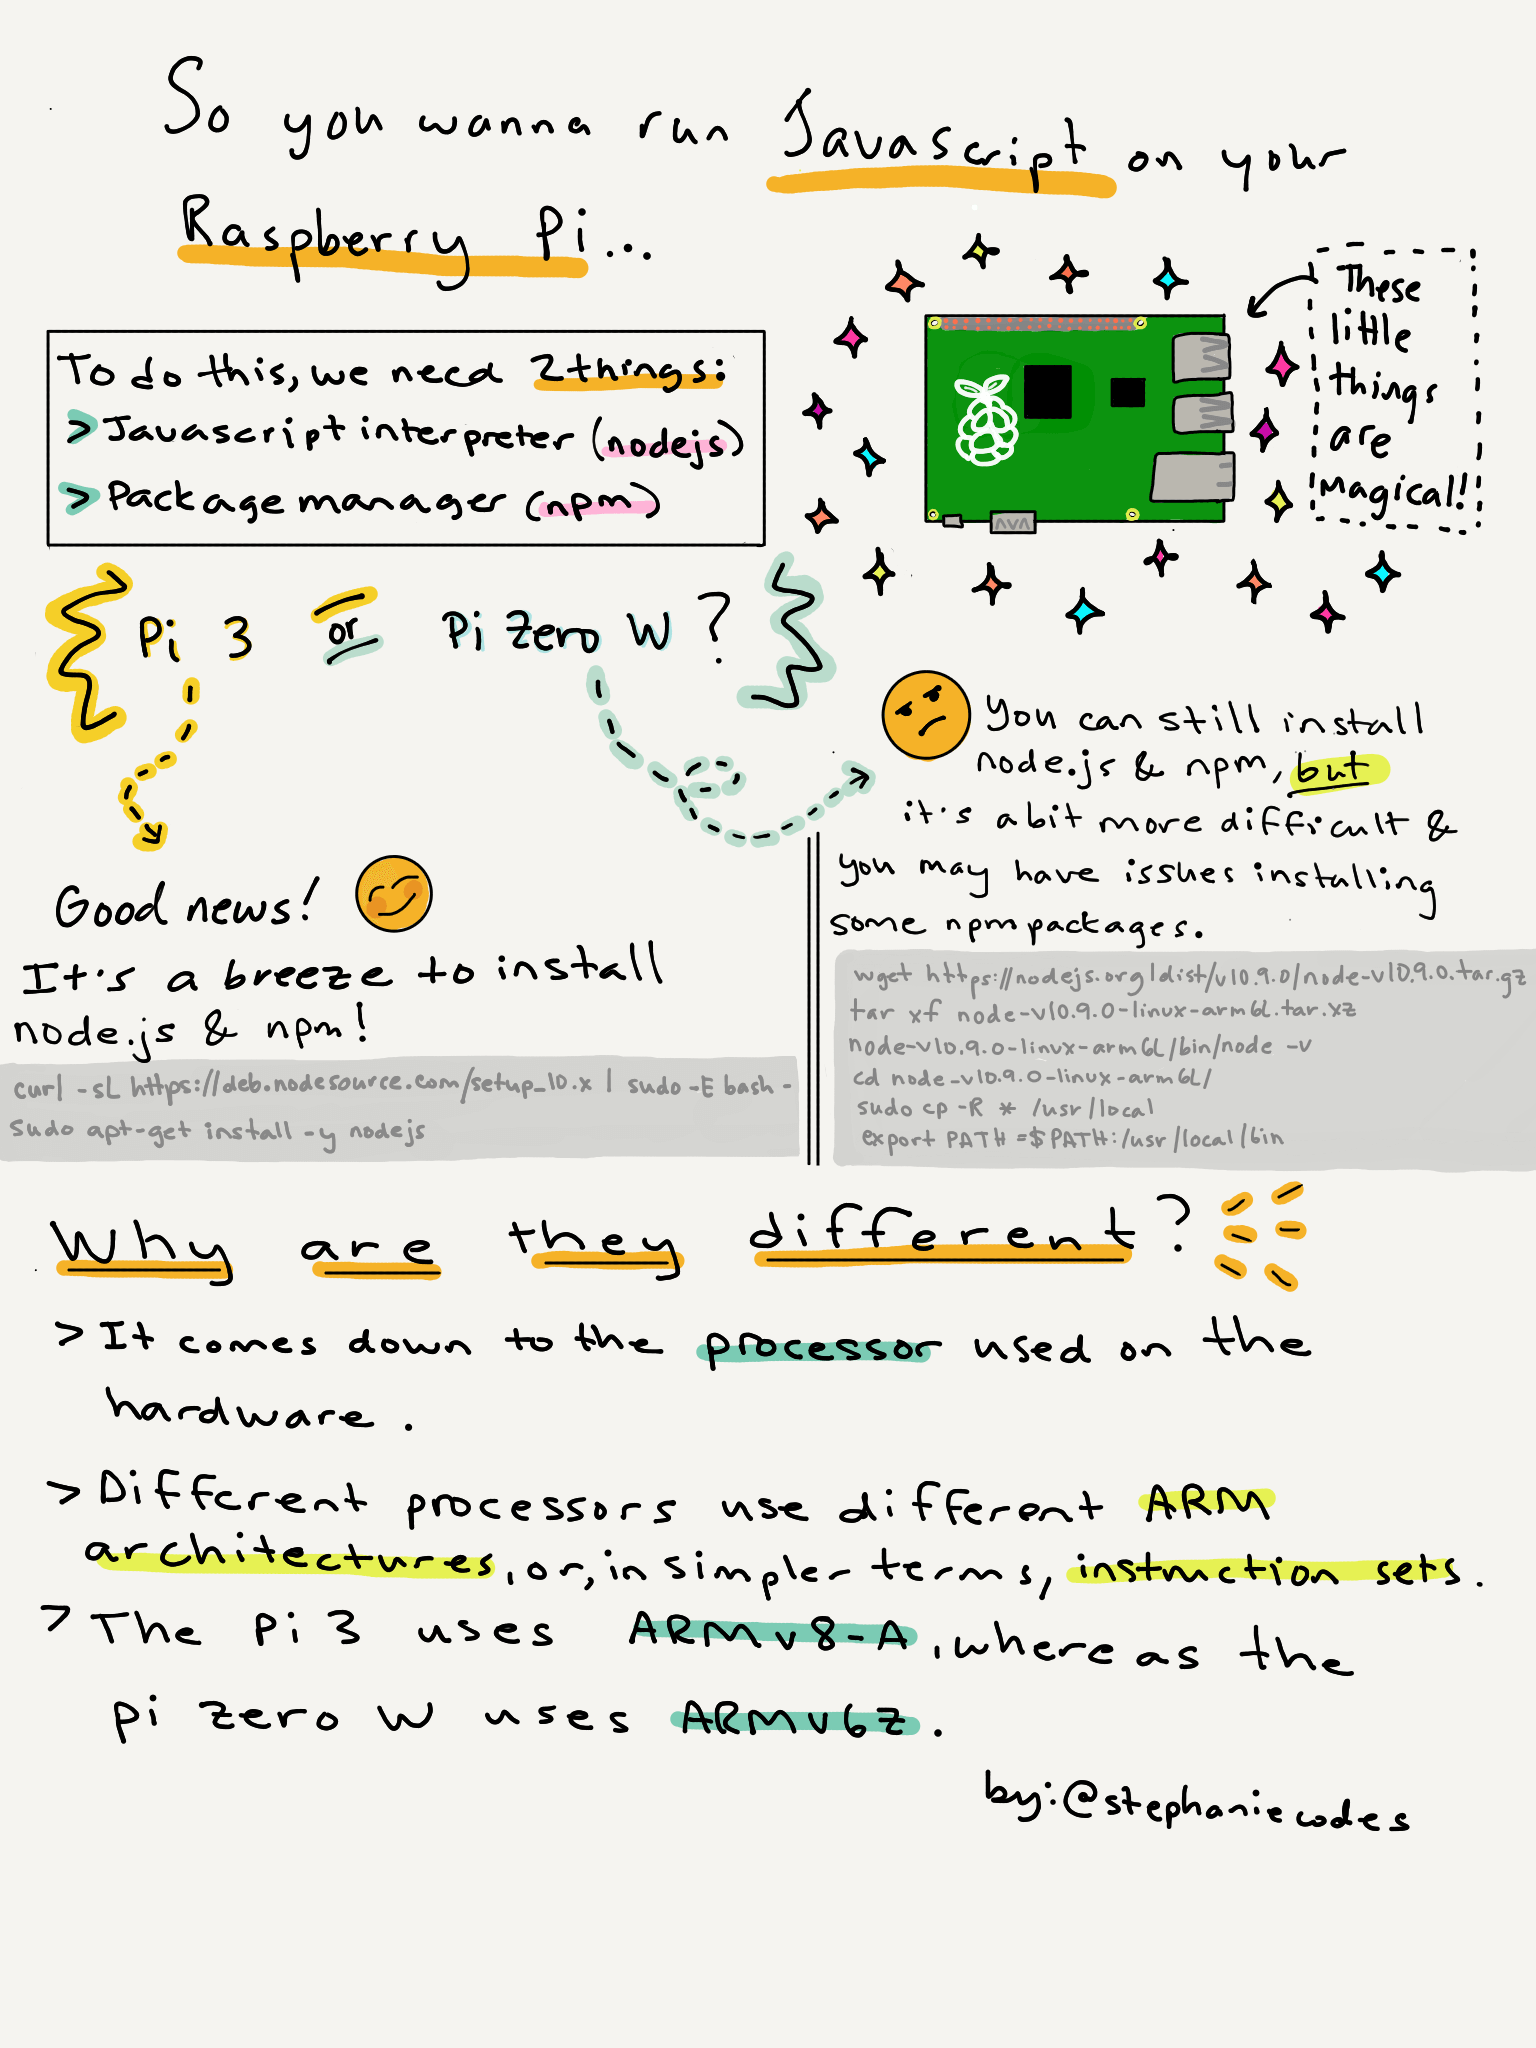 So you wanna run Javascript on your
Raspberry Pi...
These
little
things
are
magical!
To do this, we need 2 things:
> Javascript interpreter (nodejs)
> Package manager (npm)
Pi 3 or Pi Zero W?
Good news!
It's a breeze to install
node.js & npm!
curl -sL https://deb.nodesource.com/setup_10.x | sudo -E bash -
Sudo apt-get install -y nodejs
You can still install
node.js & npm, but
it's a bit more difficult &
you may have issues installing
some npm packages.
wget https://nodejs.org/dist/v10.9.0/node-v10.9.0.tar.gz
tar xf node-v10.9.0-linux-arm6L.tar.xz
node-v10.9.0-linux-arm6L/bin/node -v
cd node-v10.9.0-linux-arm6L/
sudo cp -R * /usr/local
export PATH=$PATH:/usr/local/bin
Why are they different?
> It comes down to the processor used on the
hardware.
> Different processors use different ARM
architectures, or, in simpler terms, instruction sets.
> The Pi 3 uses ARMv8-A, whereas the
pi zero W uses ARMv6Z.
by: @stephaniecodes